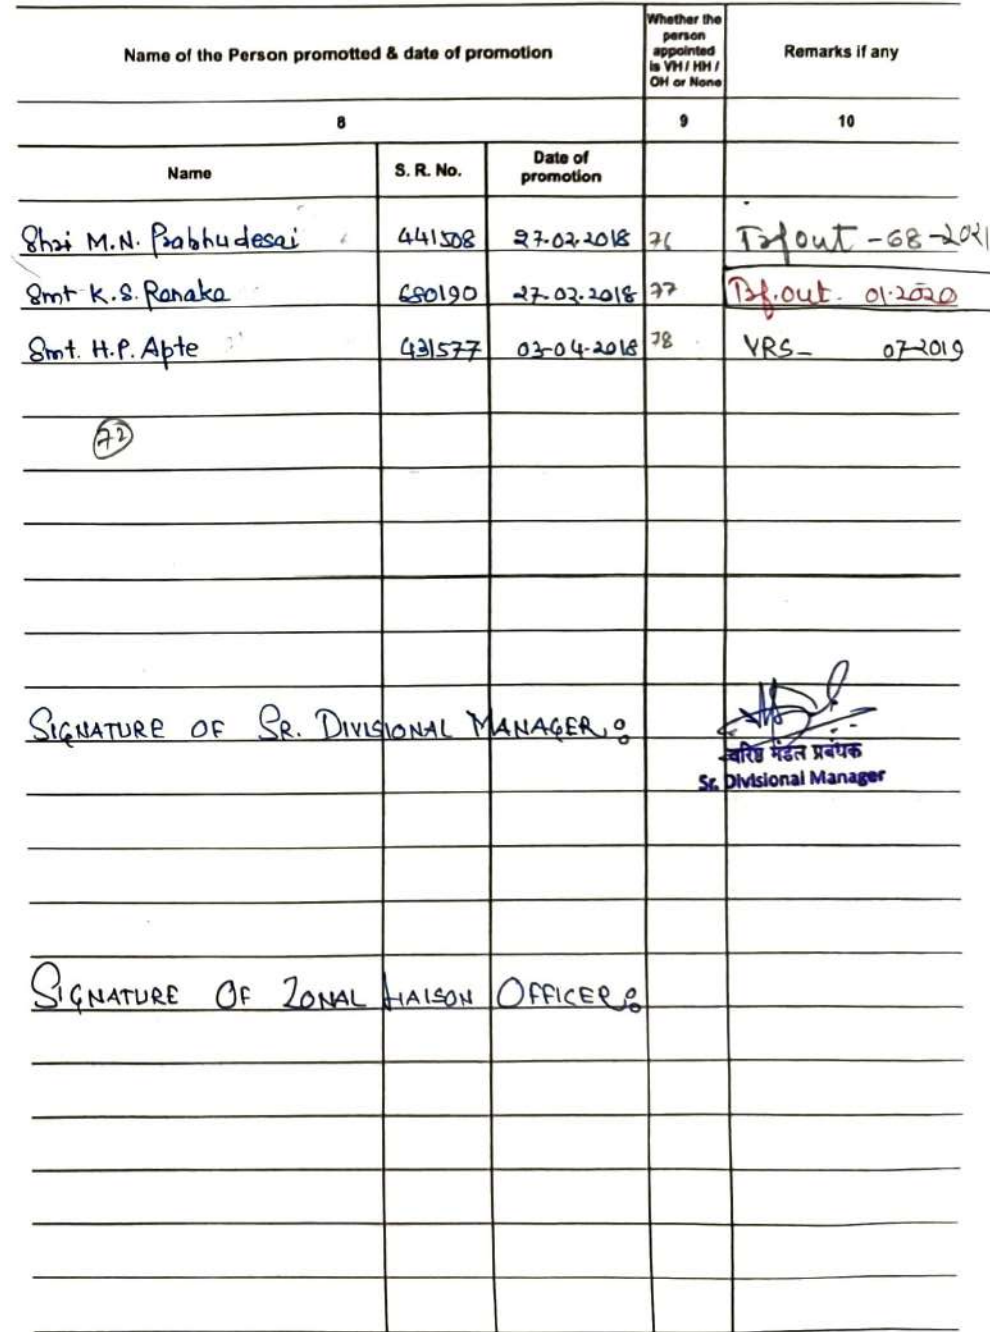 Name of the Person promotted & date of promotion
Whether the person appointed is VH / HH / OH or None
Remarks if any
8 9 10
Name S. R. No. Date of promotion
Shri M.N. Prabhudesai 441508 27.02.2018 76 Trf out - 68 - 2021
Smt K.S. Ranaka 680190 27.02.2018 77 Trf. out. 01.2020
Smt. H.P. Apte 431577 03-04-2018 78 VRS- 07-2019
72
SIGNATURE OF SR. DIVISIONAL MANAGER :
वरिष्ठ मंडल प्रबंधक
Sr. Divisional Manager
SIGNATURE OF ZONAL LIAISON OFFICER :